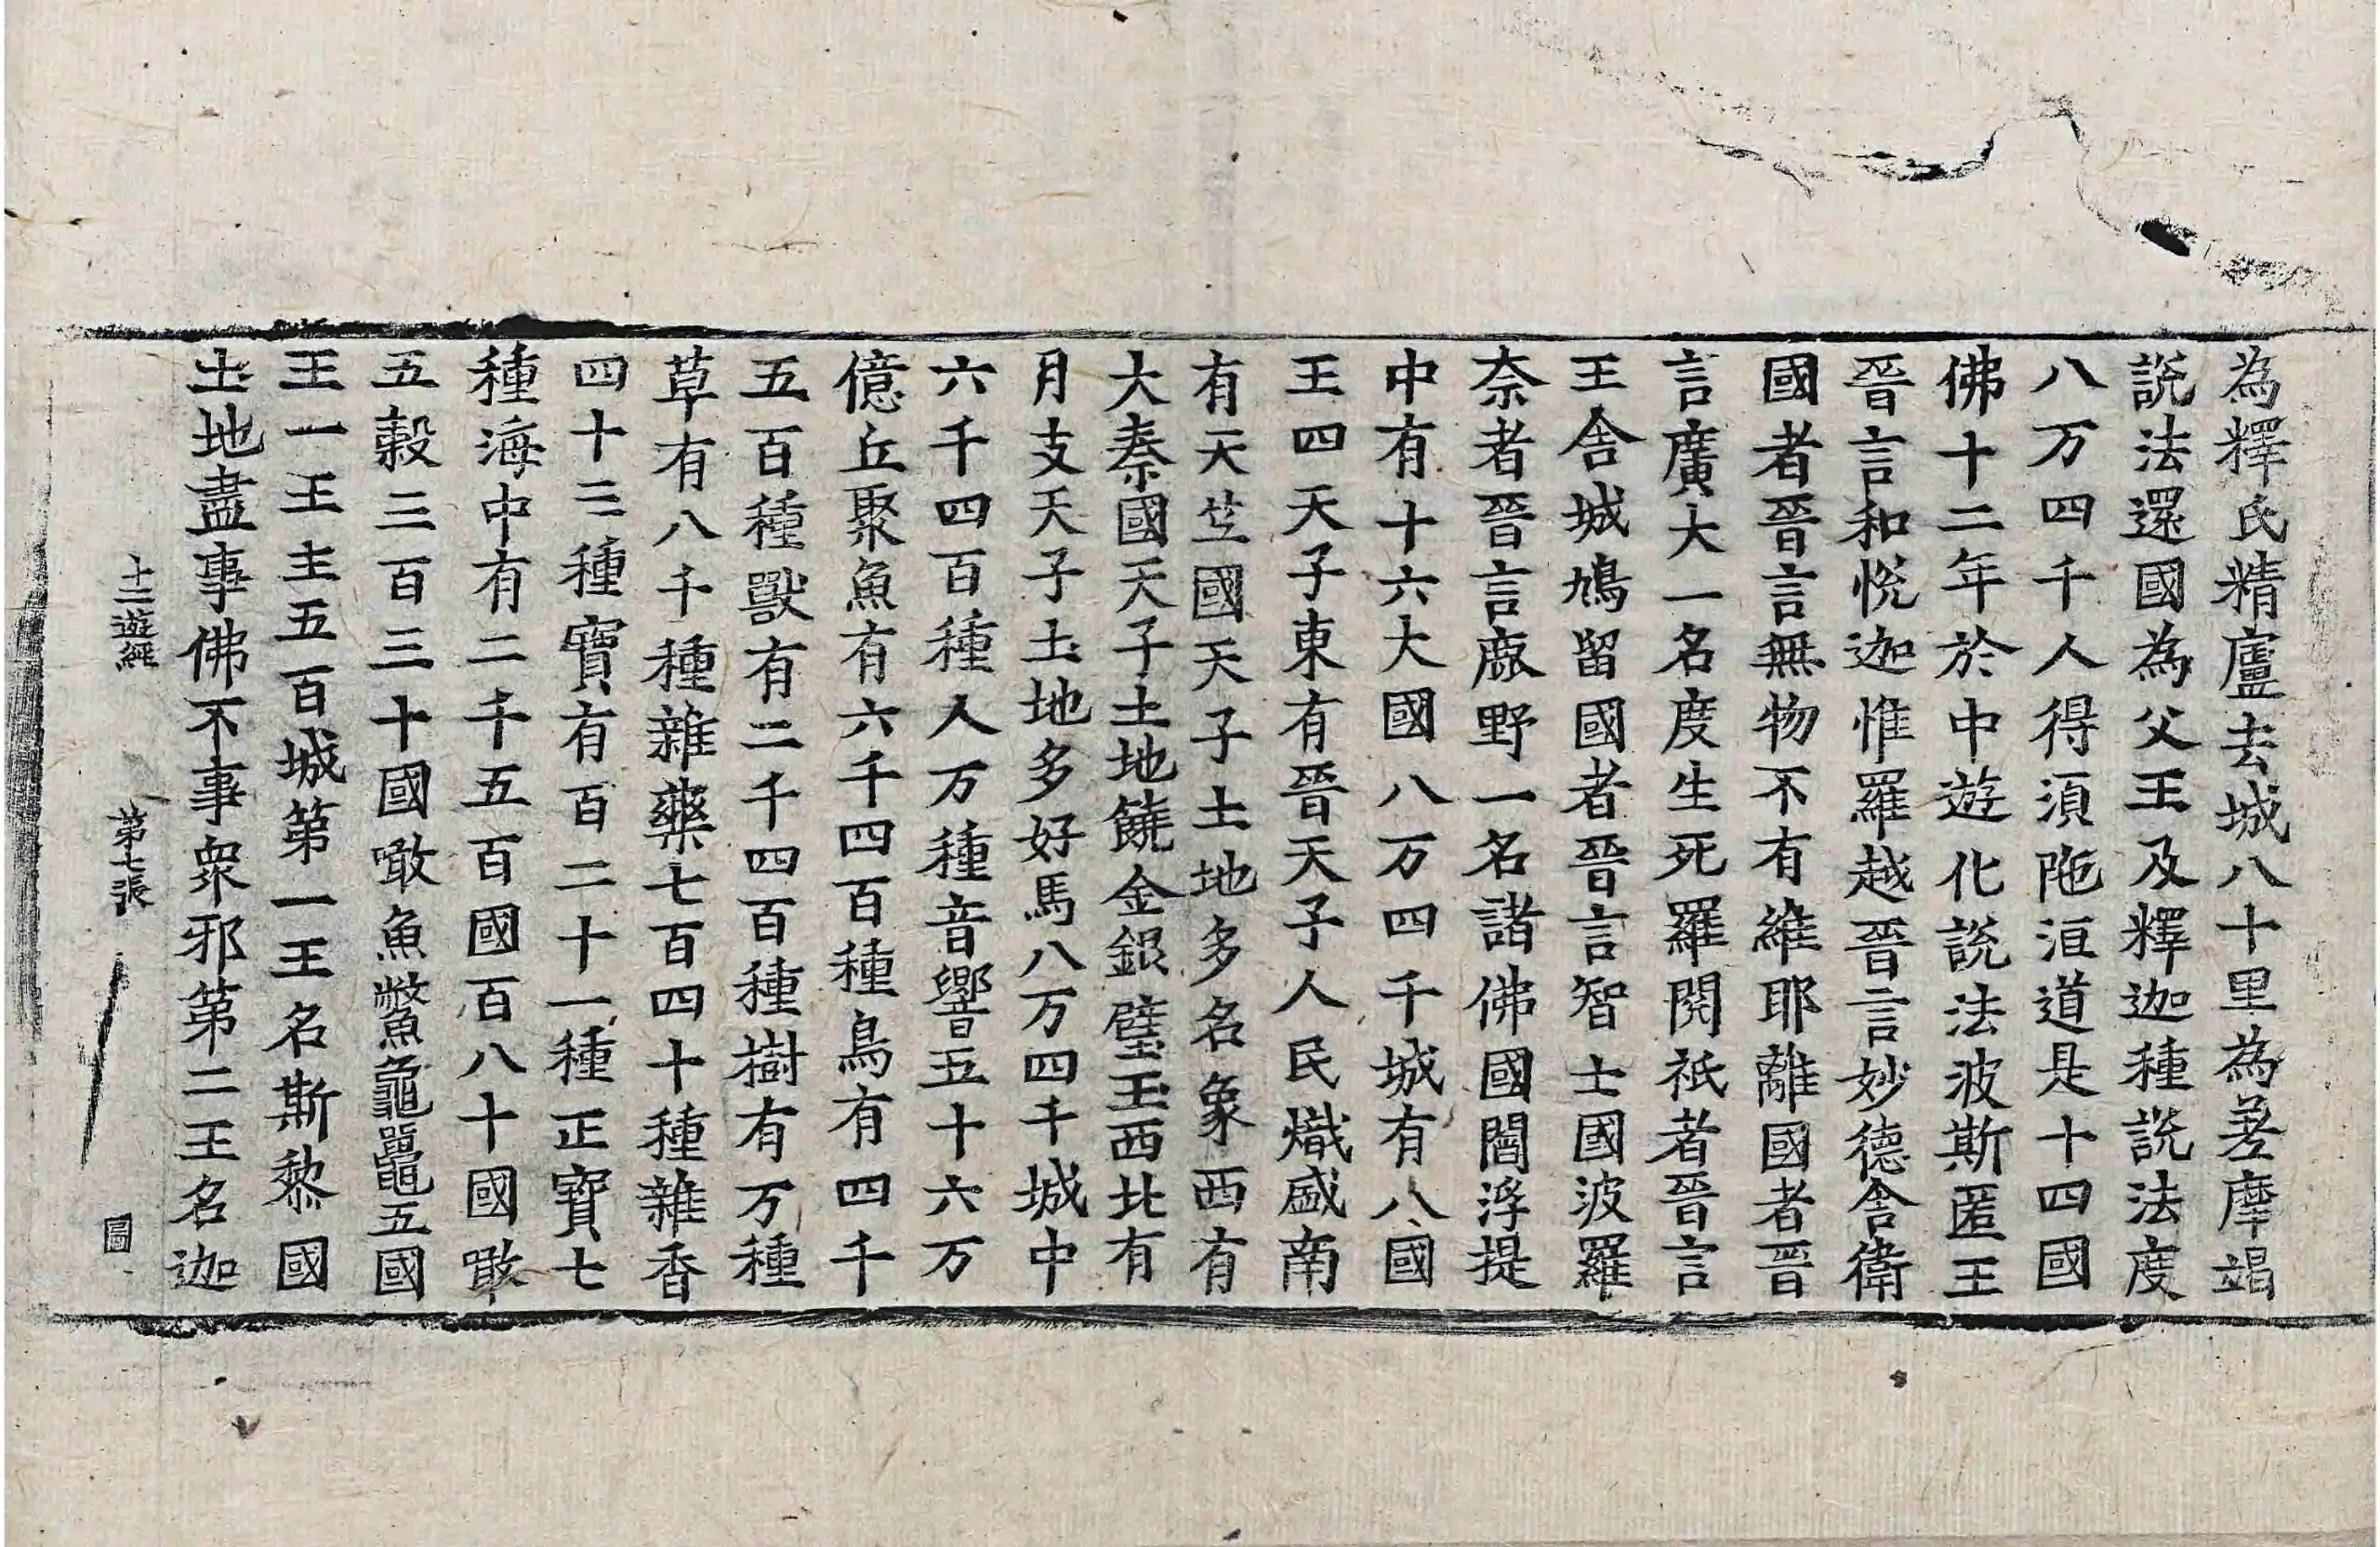 為釋氏精廬去城八十里為差摩竭
說法還國為父王及釋迦種說法度
八万四千人得湏陁洹道是十四國
佛十二年於中遊化說法波斯匿王
晉言和悅迦惟羅越晉言妙德舍衛
國者晉言無物不有維耶離國者晉
言廣大一名度生死羅閱祇者晉言
王舍城鳩留國者晉言智士國波羅
奈者晉言鹿野一名諸佛國閻浮提
中有十六大國八万四千城有八國
王四天子東有晉天子人民熾盛南
有天竺國天子土地多名象西有
大秦國天子土地饒金銀璧玉西北有
月支天子土地多好馬八万四千城中
六千四百種人万種音響五十六万
億丘聚魚有六千四百種鳥有四千
五百種獸有二千四百種樹有万種
草有八千種雜藥七百四十種雜香
四十三種寶有百二十一種正寶七
種海中有二千五百國百八十國噉
五穀三百三十國噉魚鱉龜鼉五國
王一王主五百城第一王名斯黎國
土地盡事佛不事衆邪第二王名迦
十二遊經　第七張　圖